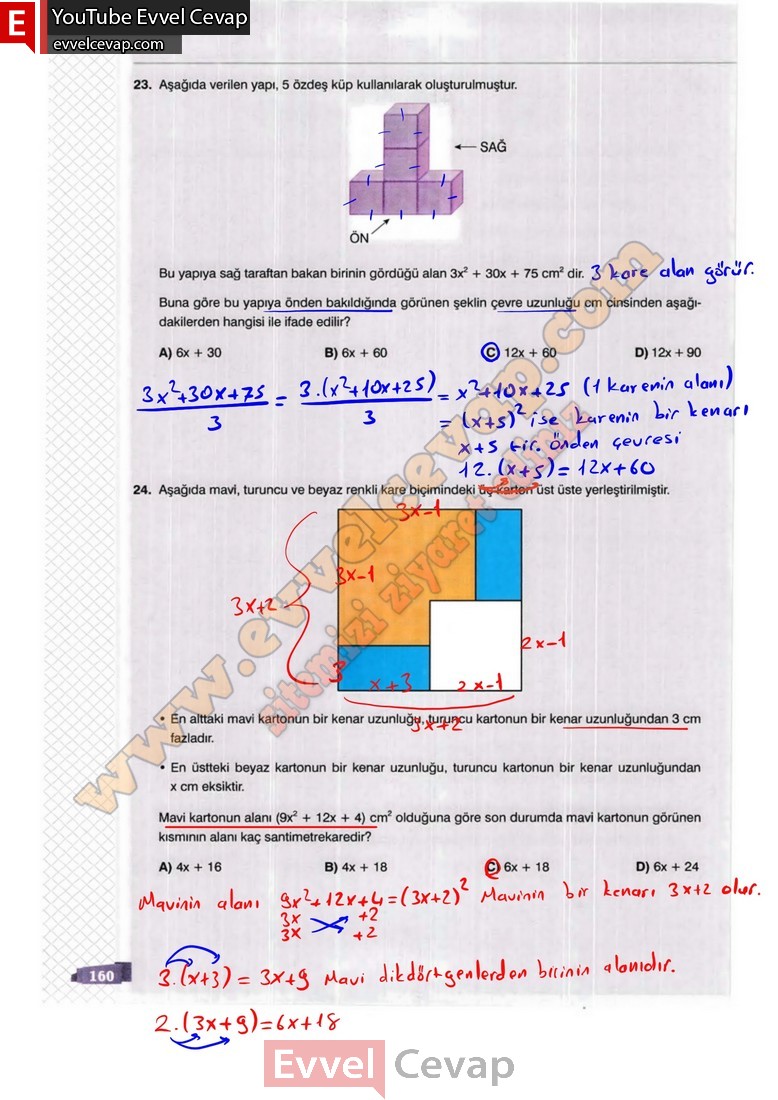 E YouTube Evvel Cevap
evvelcevap.com
23. Aşağıda verilen yapı, 5 özdeş küp kullanılarak oluşturulmuştur.
SAĞ
ÖN
Bu yapıya sağ taraftan bakan birinin gördüğü alan 3x² + 30x + 75 cm² dir. 3 kare alan görür.
Buna göre bu yapıya önden bakıldığında görünen şeklin çevre uzunluğu cm cinsinden aşağı-
dakilerden hangisi ile ifade edilir?
A) 6x + 30 B) 6x + 60 C) 12x + 60 D) 12x + 90
3x²+30x+75 / 3 = 3.(x²+10x+25) / 3 = x²+10x+25 (1 karenin alanı)
= (x+5)² ise karenin bir kenarı
x+5 tir. önden çevresi
12.(x+5) = 12x+60
24. Aşağıda mavi, turuncu ve beyaz renkli kare biçimindeki üç karton üst üste yerleştirilmiştir.
3x-1
3x-1
3x+2
2x-1
3
x+3 2x-1
3x+2
• En alttaki mavi kartonun bir kenar uzunluğu, turuncu kartonun bir kenar uzunluğundan 3 cm
fazladır.
• En üstteki beyaz kartonun bir kenar uzunluğu, turuncu kartonun bir kenar uzunluğundan
x cm eksiktir.
Mavi kartonun alanı (9x² + 12x + 4) cm² olduğuna göre son durumda mavi kartonun görünen
kısmının alanı kaç santimetrekaredir?
A) 4x + 16 B) 4x + 18 C) 6x + 18 D) 6x + 24
Mavinin alanı 9x²+12x+4=(3x+2)² Mavinin bir kenarı 3x+2 olur.
3x +2
3x +2
3.(x+3) = 3x+9 Mavi dikdörtgenlerden birinin alanıdır.
2.(3x+9)=6x+18
160
www.evvelcevap.com
sitemizi ziyaret ediniz
Evvel Cevap